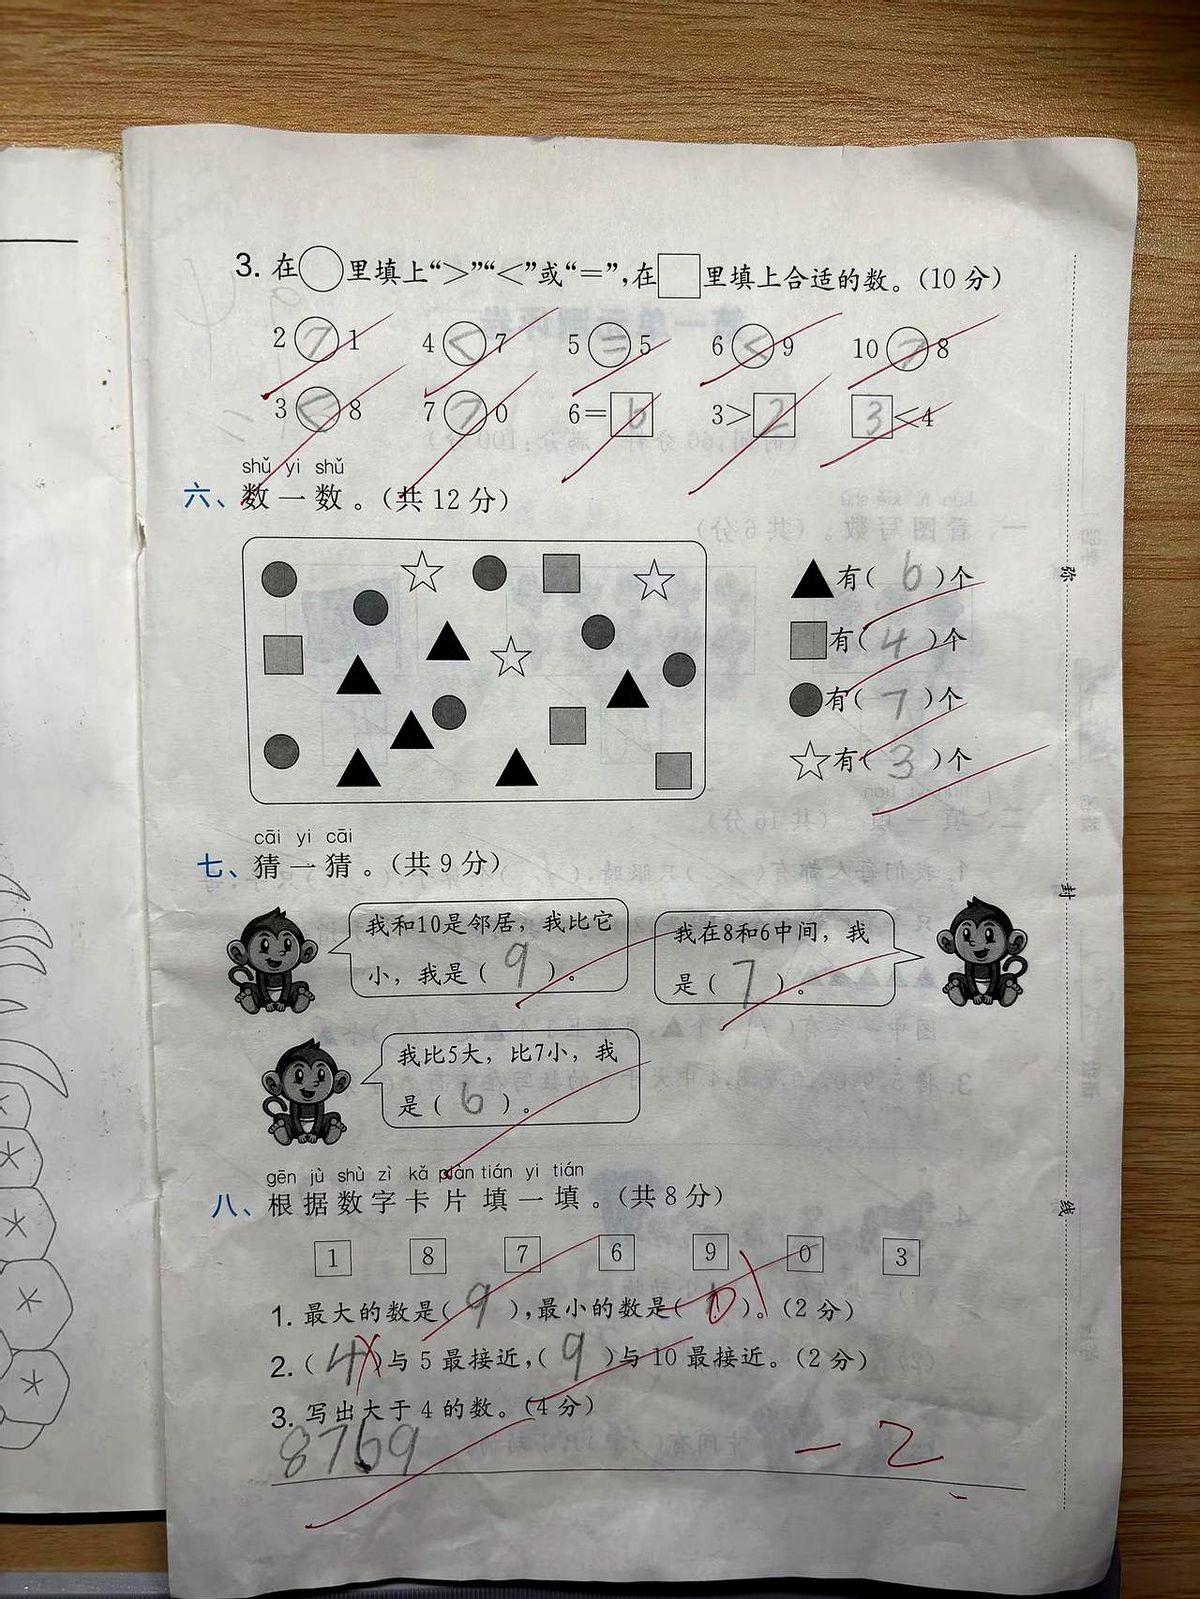 3. 在○里填上“>”“<”或“=”,在□里填上合适的数。(10分)
2 > 1 4 < 7 5 = 5 6 < 9 10 > 8
3 < 8 7 > 0 6=6 3>2 3<4
shǔ yi shǔ
六、数一数。(共12分)
▲有( 6 )个
■有( 4 )个
●有( 7 )个
☆有( 3 )个
cāi yi cāi
七、猜一猜。(共9分)
我和10是邻居，我比它
小，我是( 9 )。
我在8和6中间，我
是( 7 )。
我比5大，比7小，我
是( 6 )。
gēn jù shù zì kǎ piàn tián yi tián
八、根据数字卡片填一填。(共8分)
1 8 7 6 9 0 3
1. 最大的数是( 9 ),最小的数是( 0 )。(2分)
2. ( 4 )与5最接近,( 9 )与10最接近。(2分)
3. 写出大于4的数。(4分)
8769
-2
弥
封
线